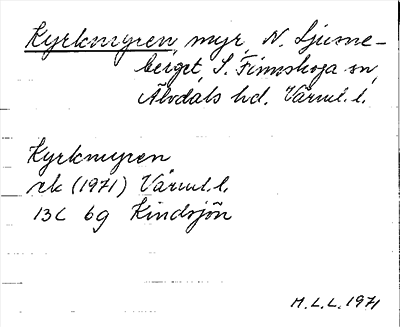 Kyrkmyren, myr, N. Ljusne-
berget, S. Finnskoga sn,
Älvdals hd. Värml. l.
Kyrkmyren
rk (1971) Värml. l.
13C 6g Kindsjön
M.L.L. 1971